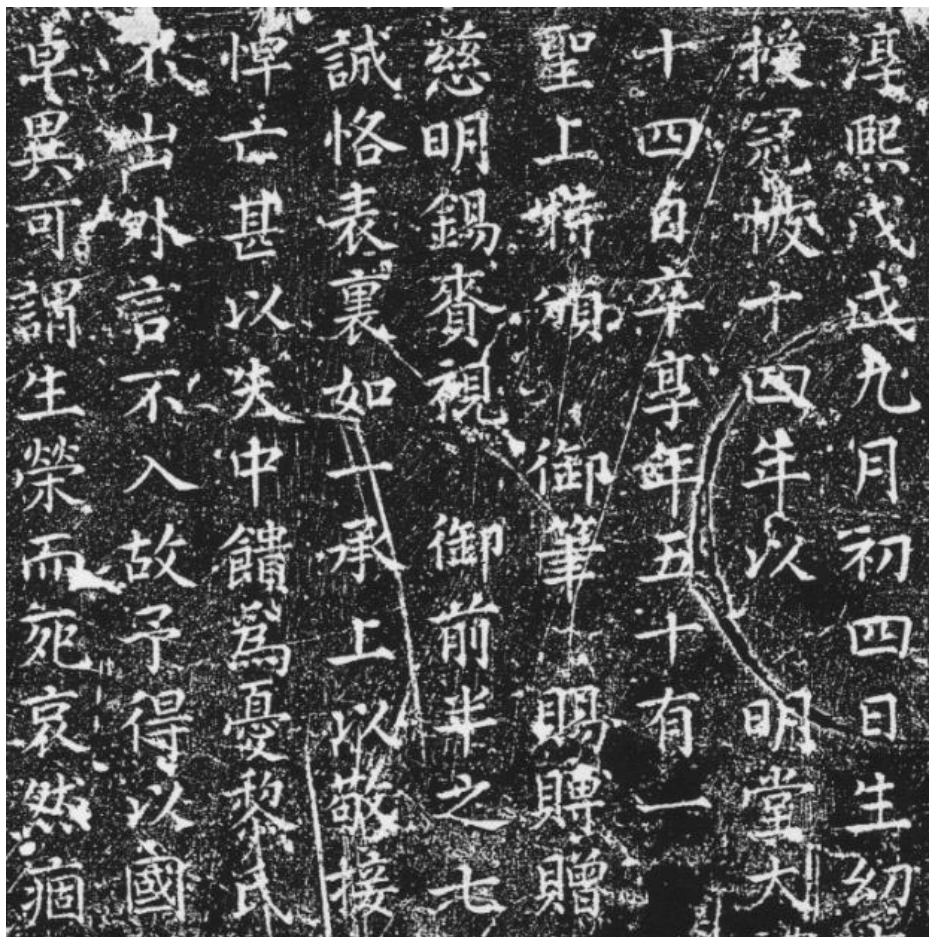 淳熙戊戌九月初四日生幼
授冠帔十四年以明堂大
十四自卒享年五十有一
聖上特頒御筆賜賻贈
慈明錫賚視御前半之七
誠恪表裏如一承上以敬接
悼亡甚以失中饋爲憂黎氏
不出外言不入故予得以國
卓異可謂生榮而死哀然痼